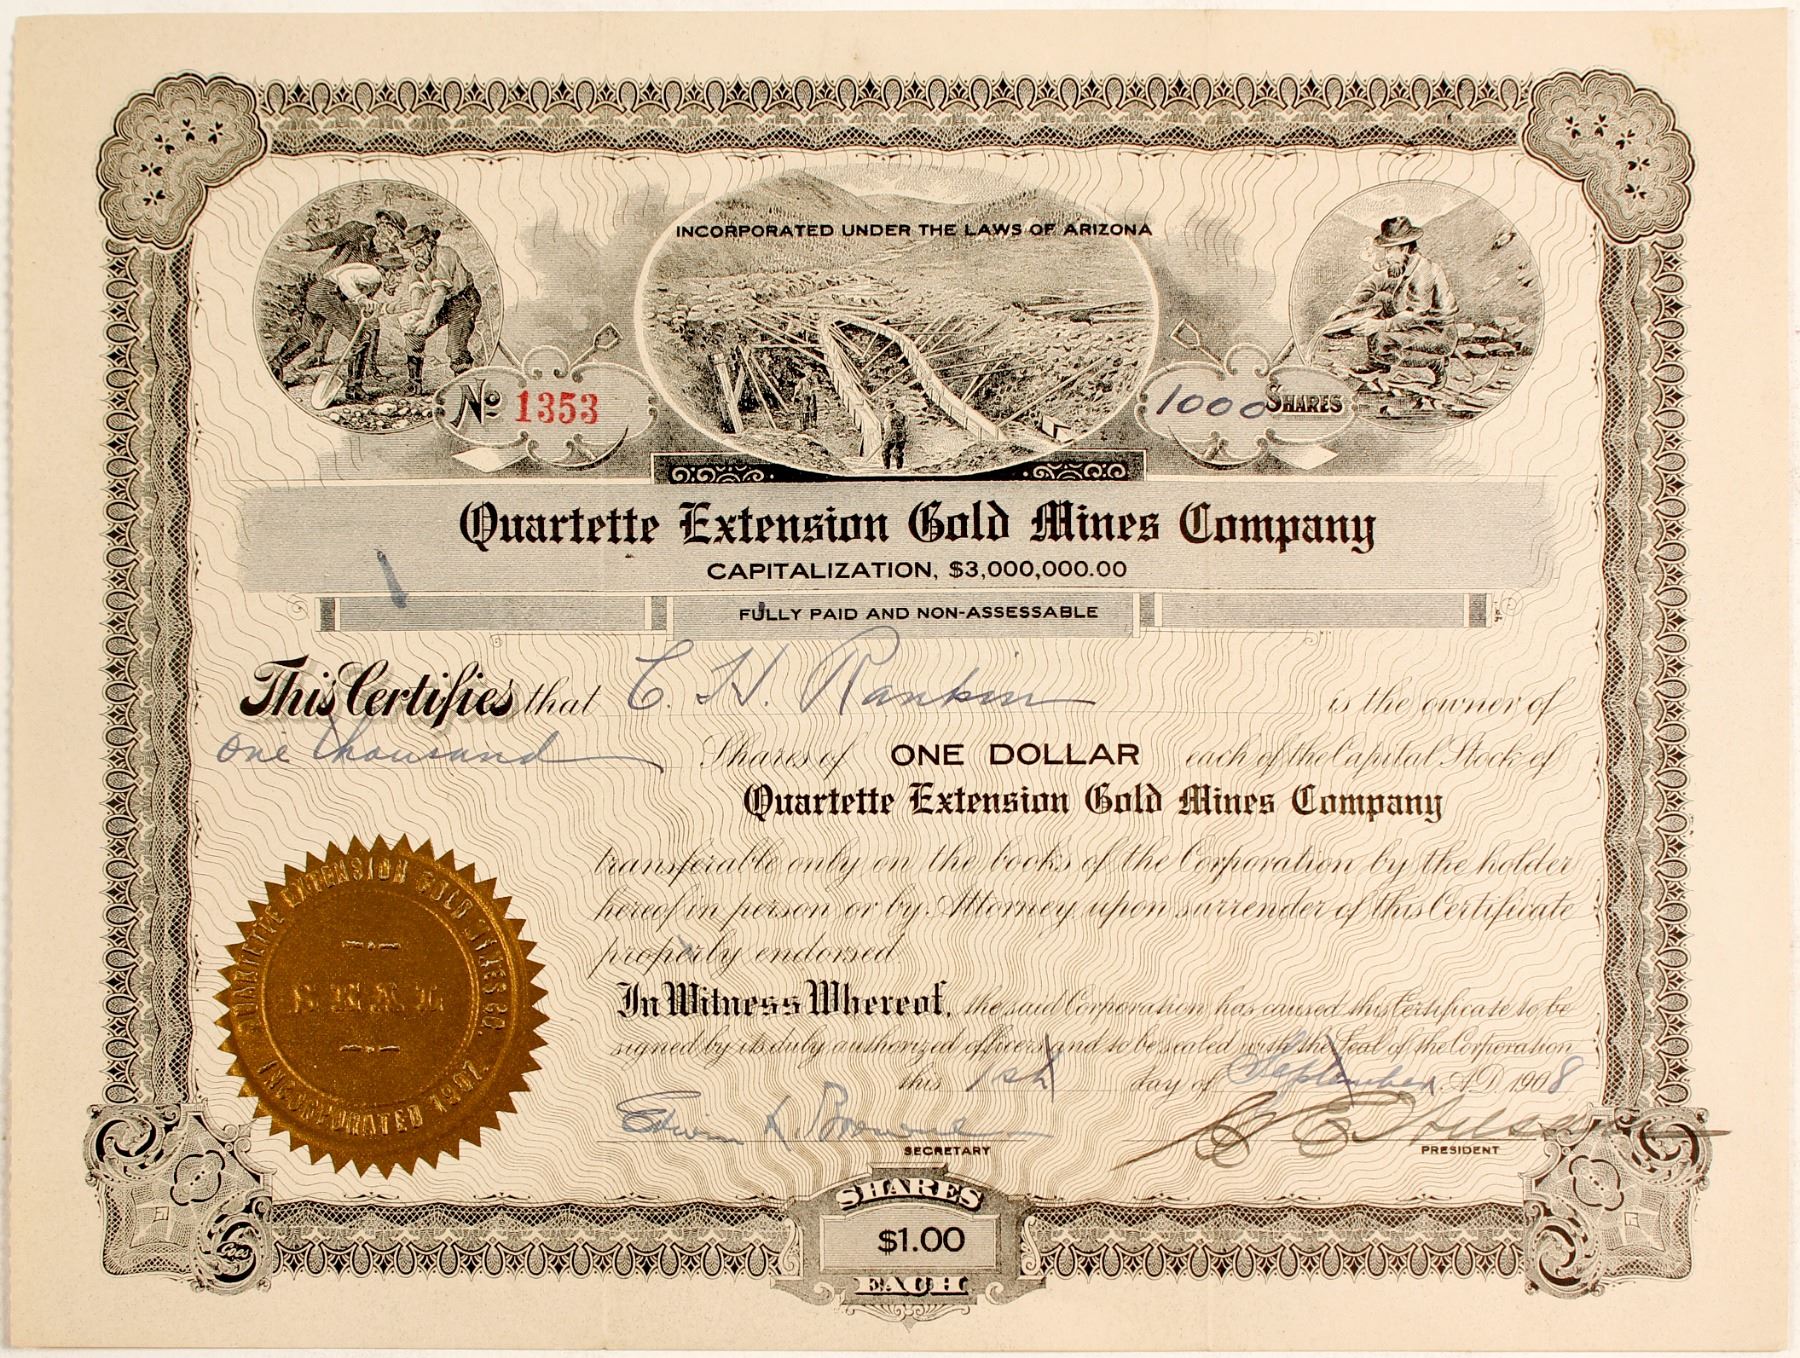 INCORPORATED UNDER THE LAWS OF ARIZONA
No 1353
1000 SHARES
Quartette Extension Gold Mines Company
CAPITALIZATION, $3,000,000.00
FULLY PAID AND NON-ASSESSABLE
This Certifies that C. H. Rankin is the owner of
one thousand Shares of ONE DOLLAR each of the Capital Stock of
Quartette Extension Gold Mines Company
transferable only on the books of the Corporation by the holder
hereof in person or by Attorney upon surrender of this Certificate
properly endorsed.
In Witness Whereof, the said Corporation has caused this Certificate to be
signed by its duly authorized officers and to be sealed with the Seal of the Corporation
this 1st day of September A.D. 1908
Edwin L Browne
SECRETARY
PRESIDENT
QUARTETTE EXTENSION GOLD MINES CO.
SEAL
INCORPORATED 1907
SHARES
$1.00
EACH
Goes